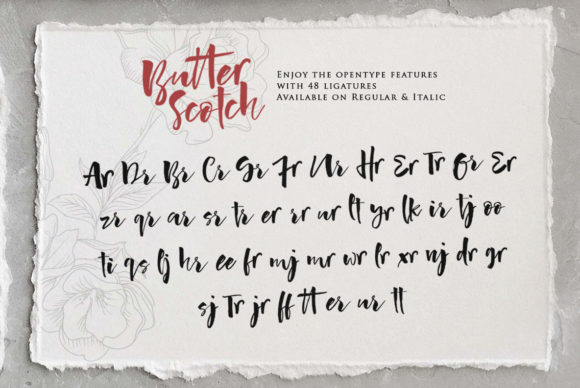 Butter
Scotch
Enjoy the opentype features
with 48 ligatures
Available on Regular & Italic
Ar Dr Br Cr Gr Fr Ur Hr Er Tr Or Er
zr qr ar sr tr er rr ur lt yr lk ir tj oo
ti qs lj hr ee fr mj mr wr lr xr nj dr gr
sj Tr jr ff tt er ur tt